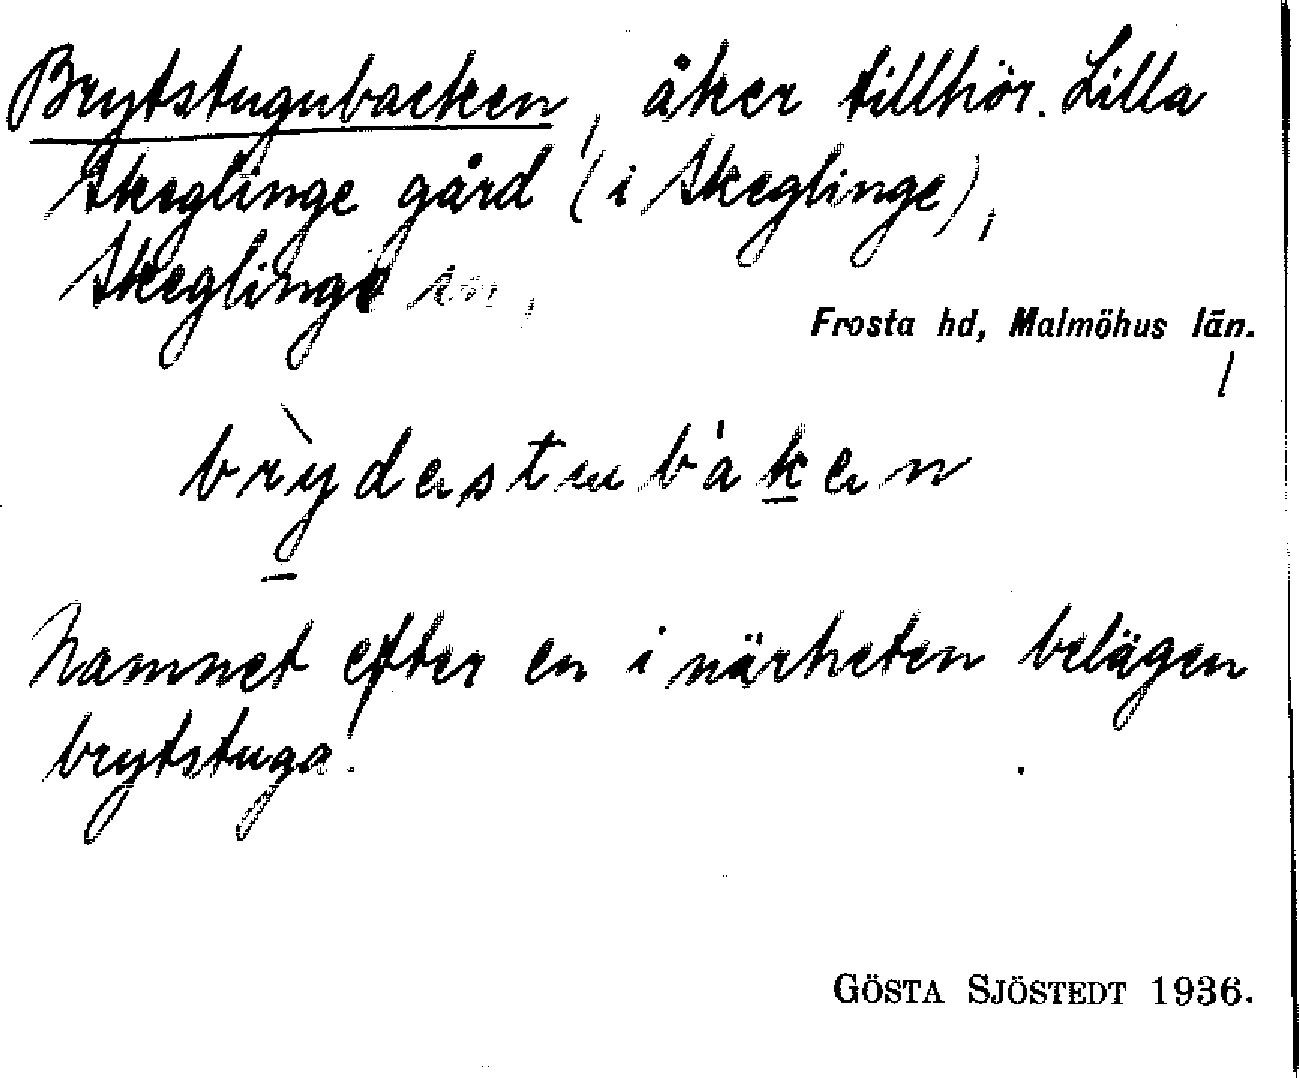 Brytstugubacken, åker tillhör. Lilla
Skeglinge gård (i Skeglinge),
Skeglinge sn,
Frosta hd, Malmöhus län.
Namnet efter en i närheten belägen
brytstuga.
GÖSTA SJÖSTEDT 1936.